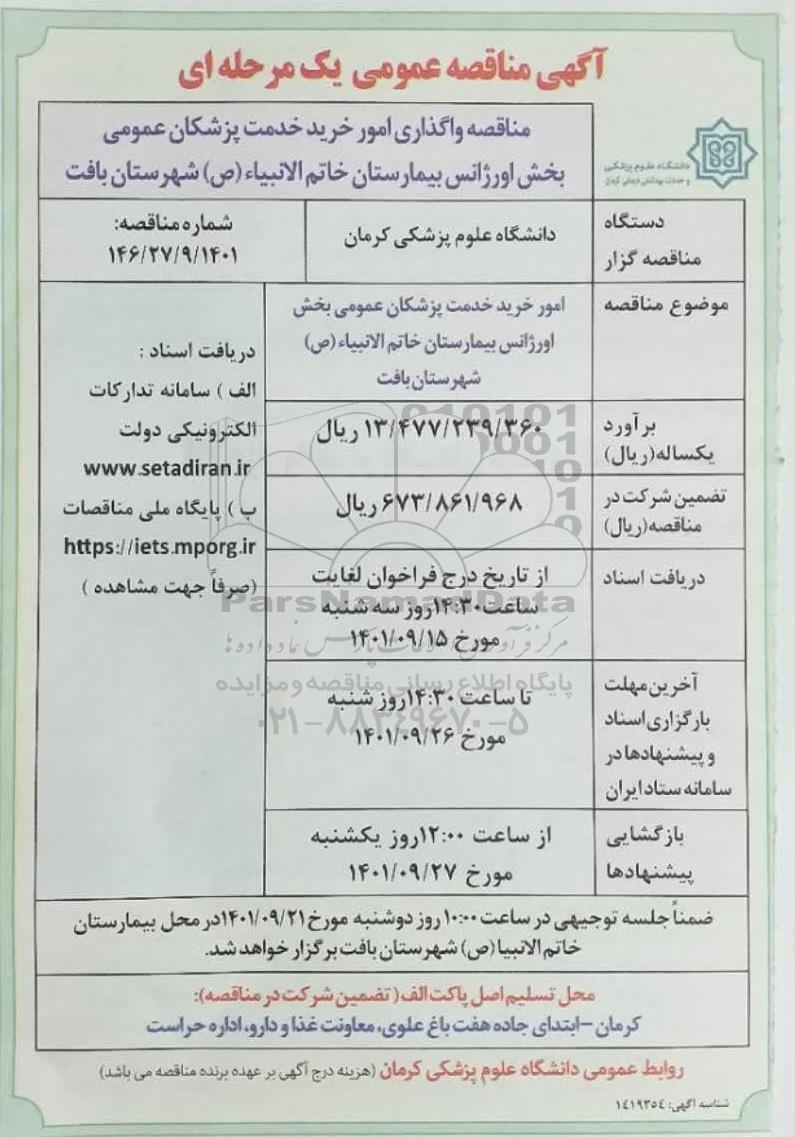 آگهی مناقصه عمومی یک مرحله ای
دانشگاه علوم پزشکی
و خدمات بهداشتی درمانی کرمان
مناقصه واگذاری امور خرید خدمت پزشکان عمومی
بخش اورژانس بیمارستان خاتم الانبیاء (ص) شهرستان بافت
دستگاه
مناقصه گزار
دانشگاه علوم پزشکی کرمان
شماره مناقصه:
۱۴۶/۲۷/۹/۱۴۰۱
موضوع مناقصه
امور خرید خدمت پزشکان عمومی بخش
اورژانس بیمارستان خاتم الانبیاء (ص)
شهرستان بافت
برآورد
یکساله(ریال)
۱۳/۴۷۷/۲۳۹/۳۶۰ ریال
تضمین شرکت در
مناقصه(ریال)
۶۷۳/۸۶۱/۹۶۸ ریال
دریافت اسناد
از تاریخ درج فراخوان لغایت
ساعت۱۴:۳۰روز سه شنبه
مورخ ۱۴۰۱/۰۹/۱۵
آخرین مهلت
بارگزاری اسناد
و پیشنهادها در
سامانه ستاد ایران
تا ساعت ۱۴:۳۰روز شنبه
مورخ ۱۴۰۱/۰۹/۲۶
بازگشایی
پیشنهادها
از ساعت ۱۲:۰۰روز یکشنبه
مورخ ۱۴۰۱/۰۹/۲۷
دریافت اسناد :
الف ) سامانه تدارکات
الکترونیکی دولت
www.setadiran.ir
ب ) پایگاه ملی مناقصات
https://iets.mporg.ir
(صرفاً جهت مشاهده )
ضمناً جلسه توجیهی در ساعت ۱۰:۰۰ روز دوشنبه مورخ ۱۴۰۱/۰۹/۲۱در محل بیمارستان
خاتم الانبیا (ص) شهرستان بافت برگزار خواهد شد.
محل تسلیم اصل پاکت الف ( تضمین شرکت در مناقصه):
کرمان -ابتدای جاده هفت باغ علوی، معاونت غذا و دارو، اداره حراست
روابط عمومی دانشگاه علوم پزشکی کرمان (هزینه درج آگهی بر عهده برنده مناقصه می باشد)
شناسه آگهی: ۱۴۱۹۳۵۴
ParsNamadData
مرکز فرآوری اطلاعات پارس نماد داده ها
پایگاه اطلاع رسانی مناقصه و مزایده
۰۲۱-۸۸۳۴۹۶۷۰-۵